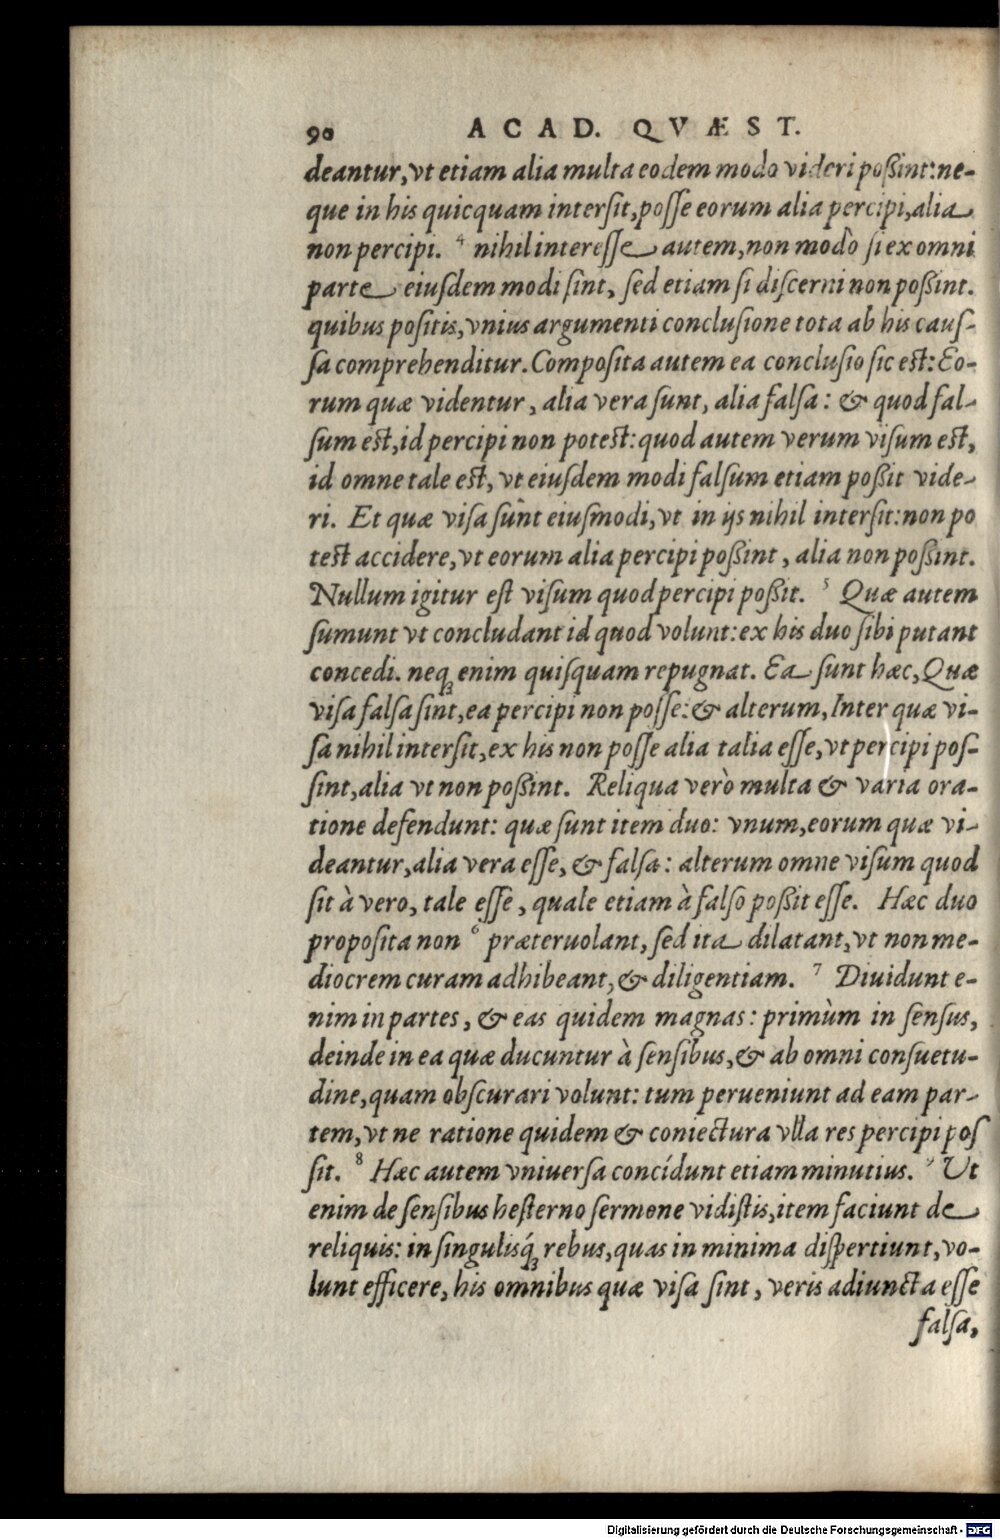 90 ACAD. QVÆST.
deantur, vt etiam alia multa eodem modo videri poßint: ne-
que in his quicquam interſit, poſſe eorum alia percipi, alia
non percipi. 4 nihil intereſſe autem, non modò ſi ex omni
parte eiuſdem modi ſint, ſed etiam ſi diſcerni non poßint.
quibus poſitis, vnius argumenti concluſione tota ab his cauſ-
ſa comprehenditur. Compoſita autem ea concluſio ſic est: Eo-
rum quæ videntur, alia vera ſunt, alia falſa: & quod fal-
ſum est, id percipi non potest: quod autem verum viſum est,
id omne tale est, vt eiuſdem modi falſum etiam poßit vide-
ri. Et quæ viſa ſunt eiuſmodi, vt in ijs nihil interſit: non po
test accidere, vt eorum alia percipi poßint, alia non poßint.
Nullum igitur eſt viſum quod percipi poßit. 5 Quæ autem
ſumunt vt concludant id quod volunt: ex his duo ſibi putant
concedi. neq; enim quiſquam repugnat. Ea ſunt hæc, Quæ
viſa falſa ſint, ea percipi non poſſe: & alterum, Inter quæ vi-
ſa nihil interſit, ex his non poſſe alia talia eſſe, vt percipi poſ-
ſint, alia vt non poßint. Reliqua verò multa & varia ora-
tione defendunt: quæ ſunt item duo: vnum, eorum quæ vi-
deantur, alia vera eſſe, & falſa: alterum omne viſum quod
ſit à vero, tale eſſe, quale etiam à falſo poßit eſſe. Hæc duo
propoſita non 6 præteruolant, ſed ita dilatant, vt non me-
diocrem curam adhibeant, & diligentiam. 7 Diuidunt e-
nim in partes, & eas quidem magnas: primùm in ſenſus,
deinde in ea quæ ducuntur à ſenſibus, & ab omni conſuetu-
dine, quam obſcurari volunt: tum perueniunt ad eam par-
tem, vt ne ratione quidem & coniectura vlla res percipi poſ
ſit. 8 Hæc autem vniuerſa concídunt etiam minutius. 9 Ut
enim de ſenſibus heſterno ſermone vidiſtis, item faciunt de
reliquis: in ſingulisq́; rebus, quas in minima diſpertiunt, vo-
lunt efficere, his omnibus quæ viſa ſint, veris adiuncta eſſe
falſa,
Digitalisierung gefördert durch die Deutsche Forschungsgemeinschaft - DFG